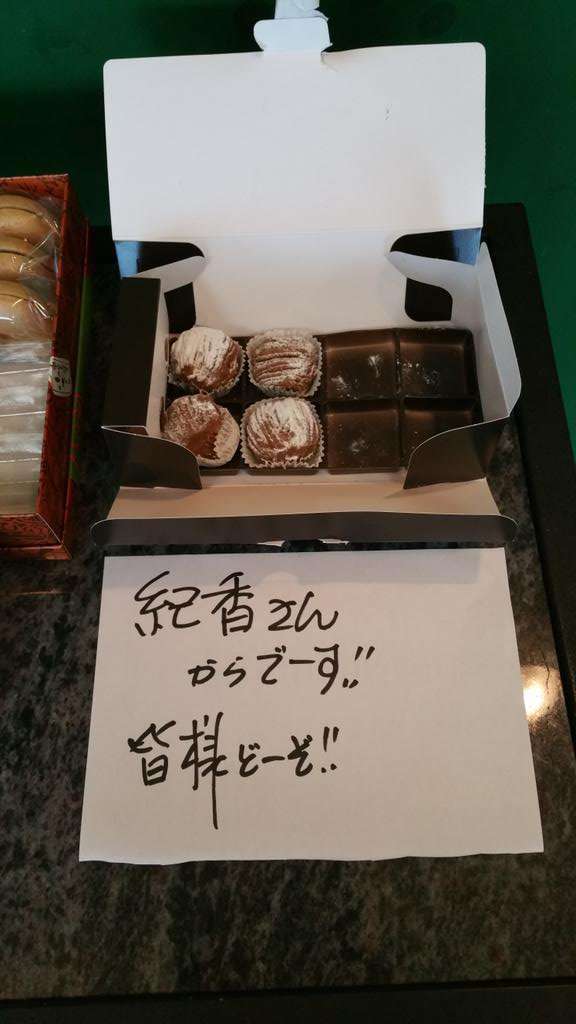 紀香さん
からでーす!!
皆様どーぞ!!